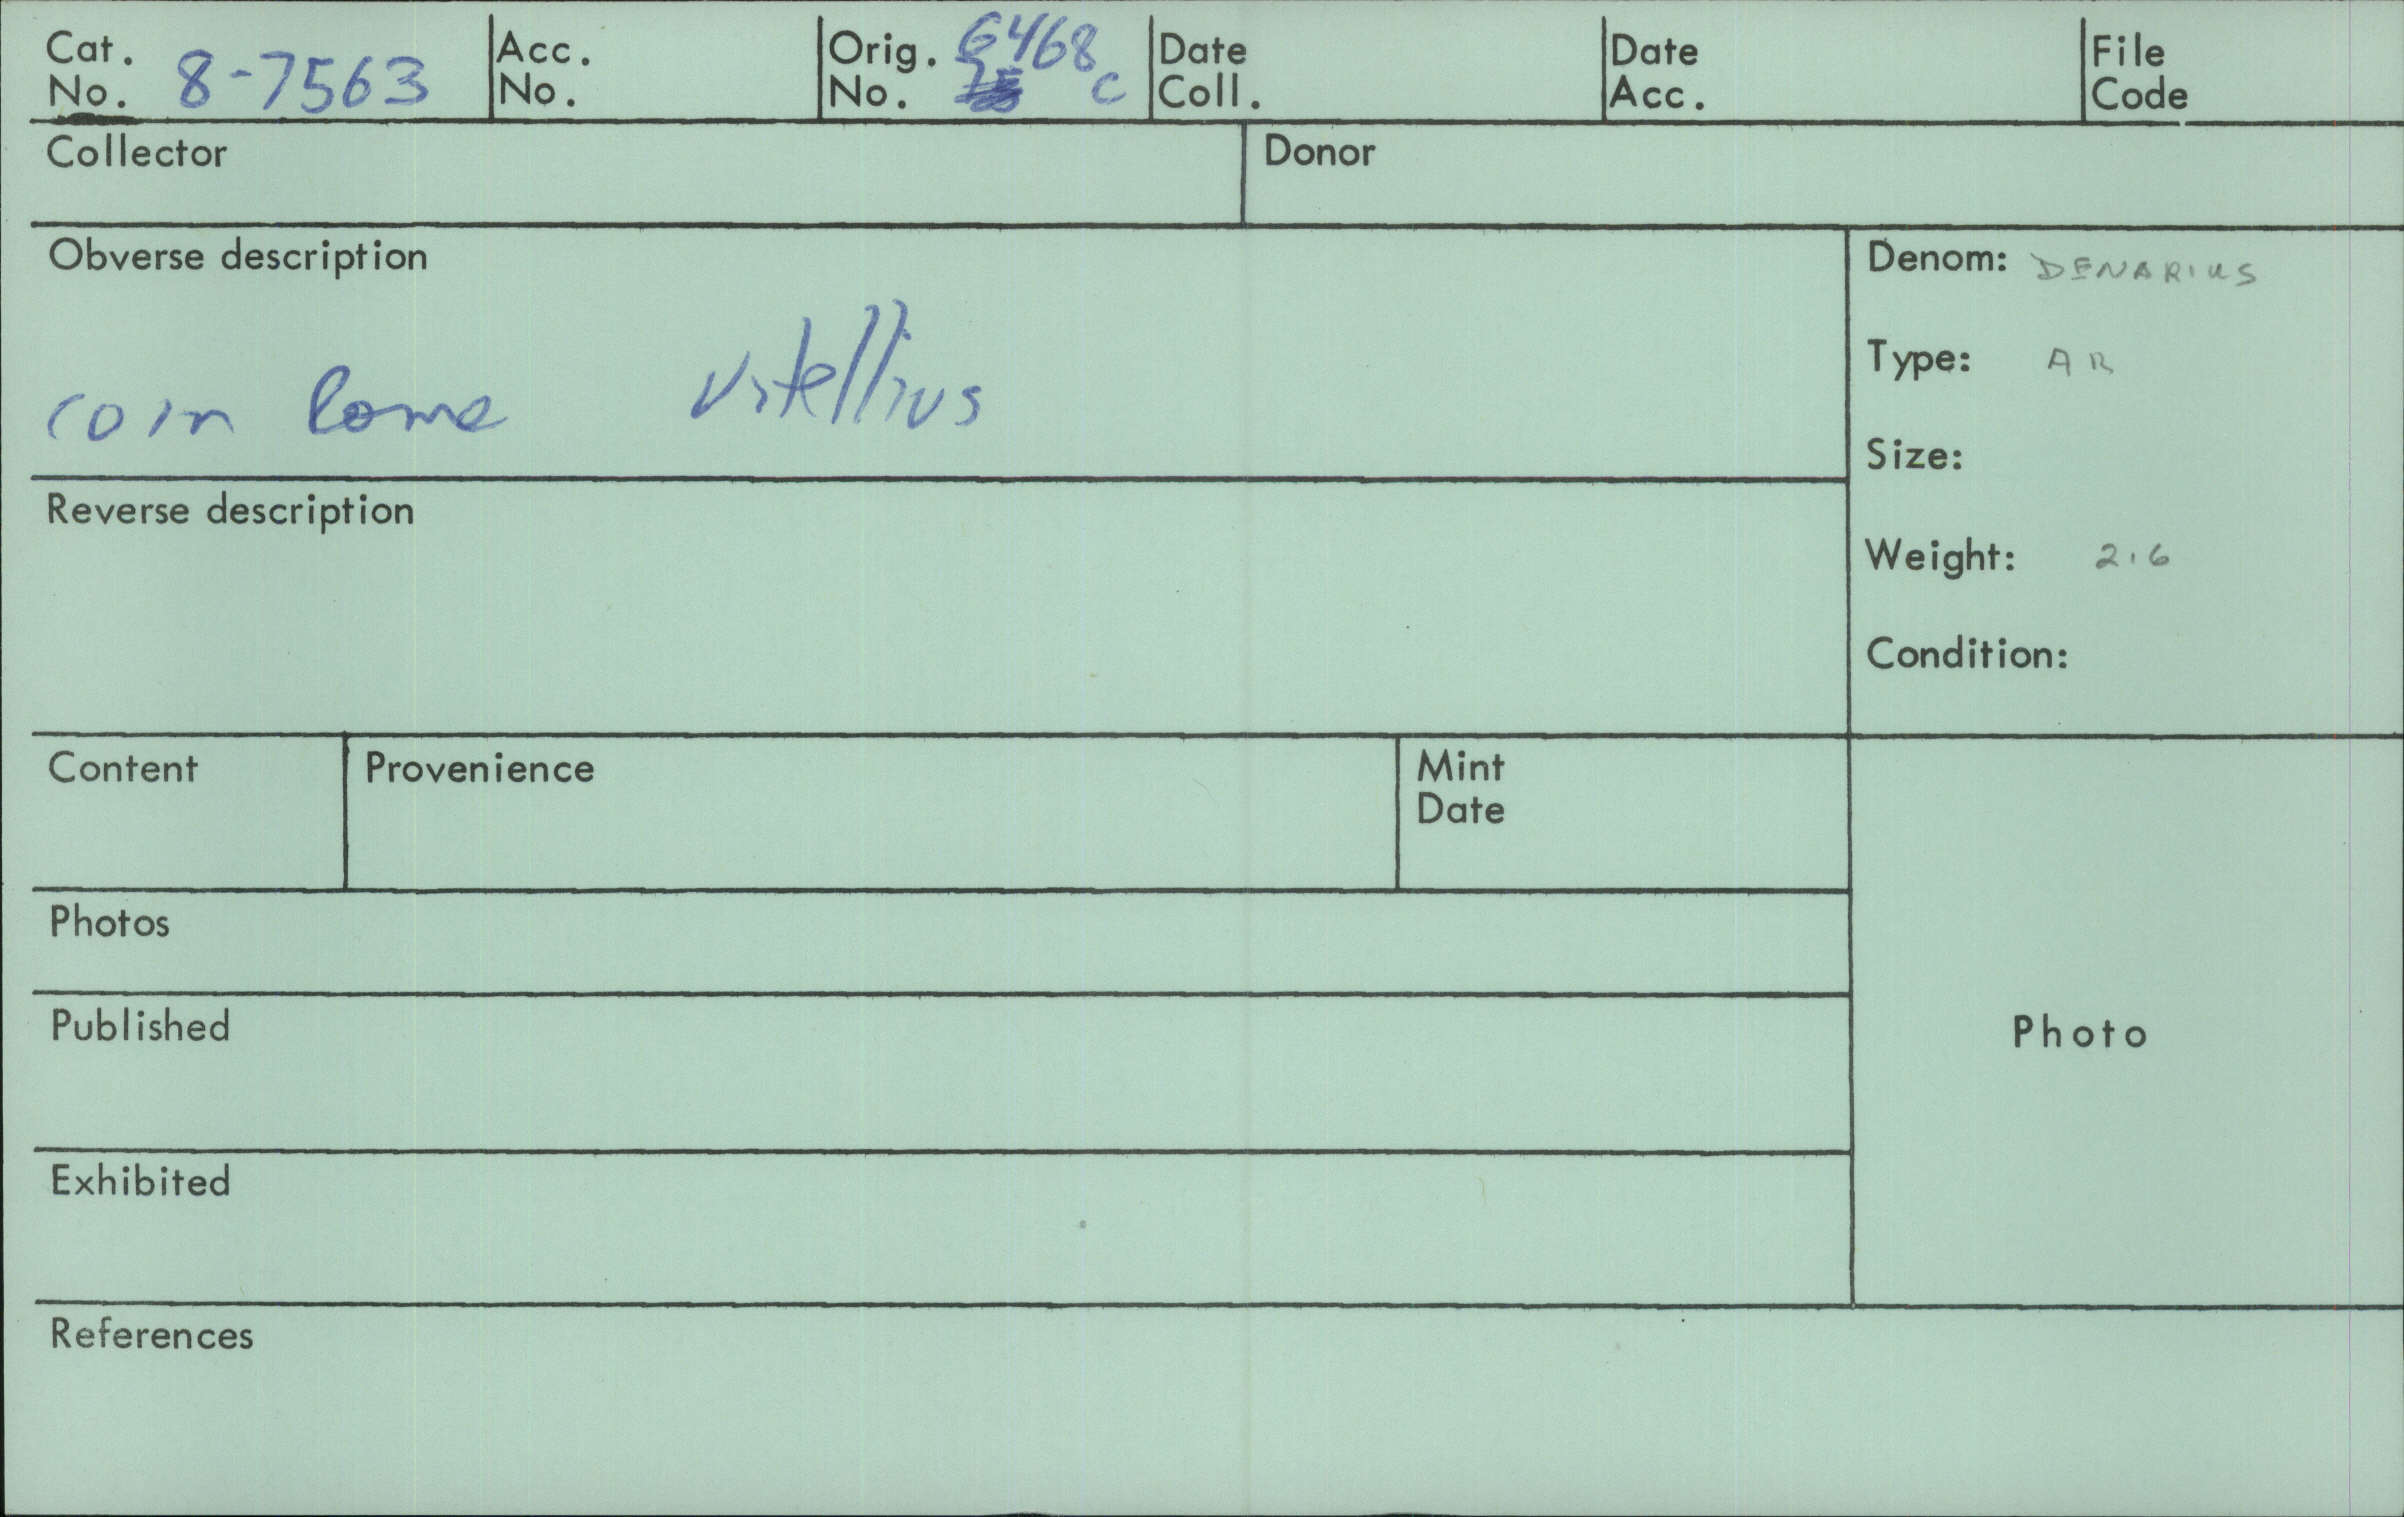 Cat. No. 8-7563
Acc. No.
Orig. No. 6468 c
Date Coll.
Date Acc.
File Code
Collector
Donor
Obverse description
coin Rome Vitellius
Denom: DENARIUS
Type: AR
Size:
Weight: 2.6
Condition:
Reverse description
Content
Provenience
Mint Date
Photos
Published
Photo
Exhibited
References